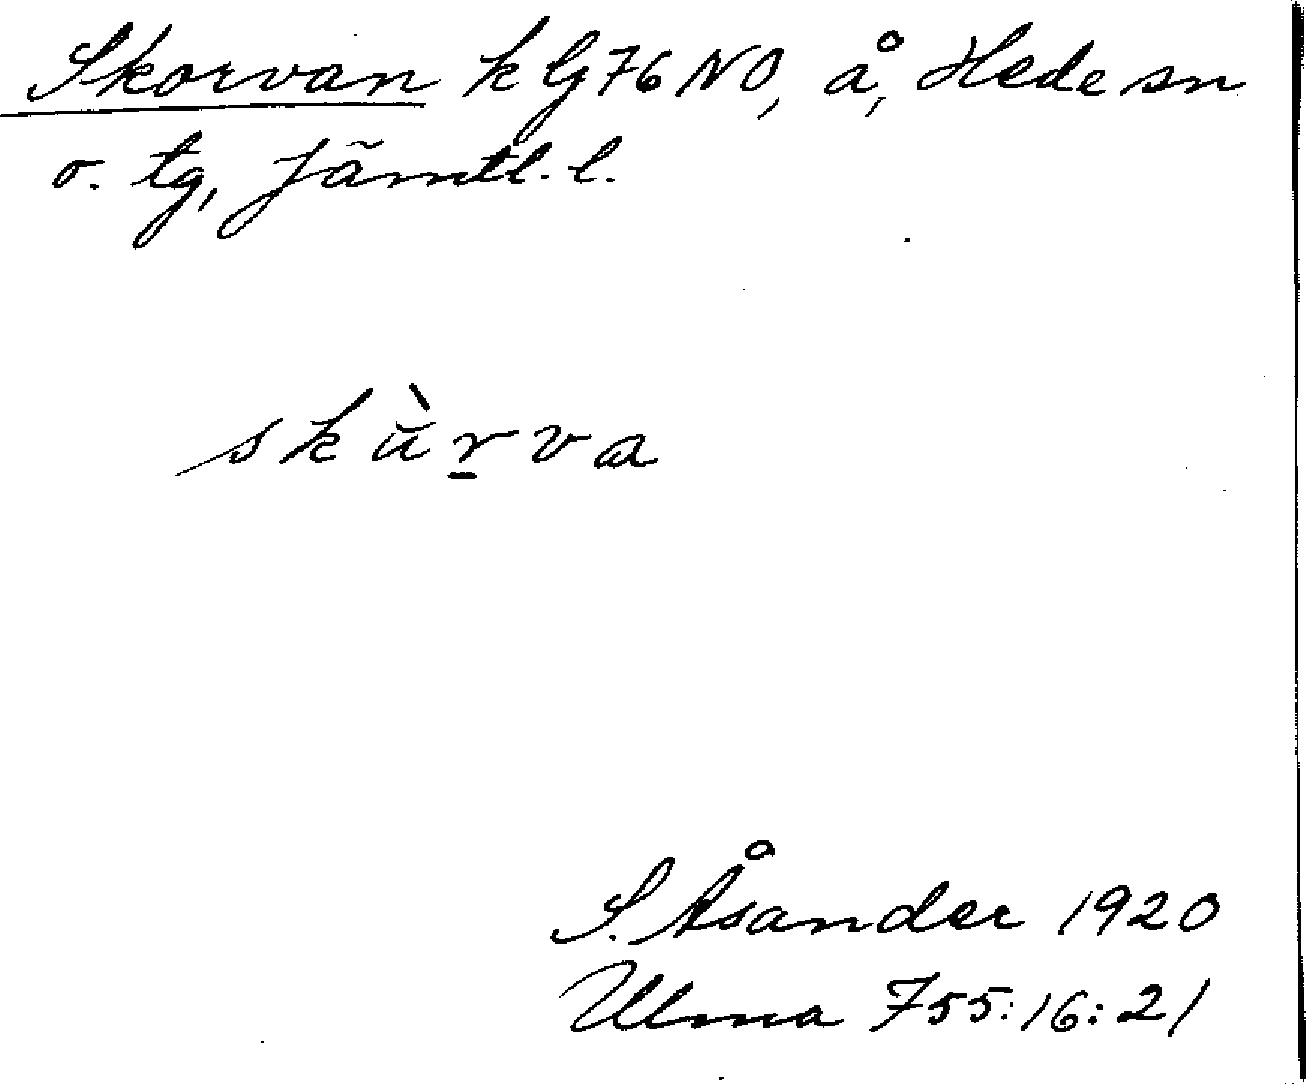 Skorvan k G 76 NO, å, Hede sn
o. tg, Jämtl. l.
skùr̲va
S. Åsander 1920
Ulma 755:16:21